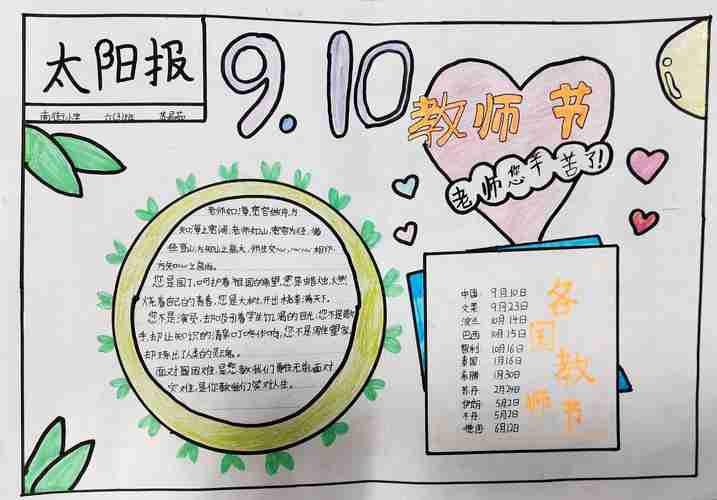 太阳报
南街小学 六(3)班
9.10
教师节
老师您辛苦了!
老师如海,宽容做舟,方
知海之宽阔;老师如山,宽容为径,循
径登山,方知山之高大,师生交
方知
您是园丁,呵护着祖国的希望,您是蜡烛,燃
烧着自己的青春,您是大树,开出桃李满天下。
您不是演员,却吸引着学生饥渴的目光,您不是歌
手,却让知识的清泉叮咚作响,您不是雕塑家,
却塑出了人类的灵魂。
面对困难,是您教我们
灾难,是您教我们笑对人生。
各国教师节
中国: 9月10日
文莱: 9月23日
波兰: 10月14日
巴西: 10月15日
智利: 10月16日
泰国: 1月16日
希腊: 1月30日
苏丹: 2月24日
伊朗: 5月2日
不丹: 5月2日
德国: 6月12日